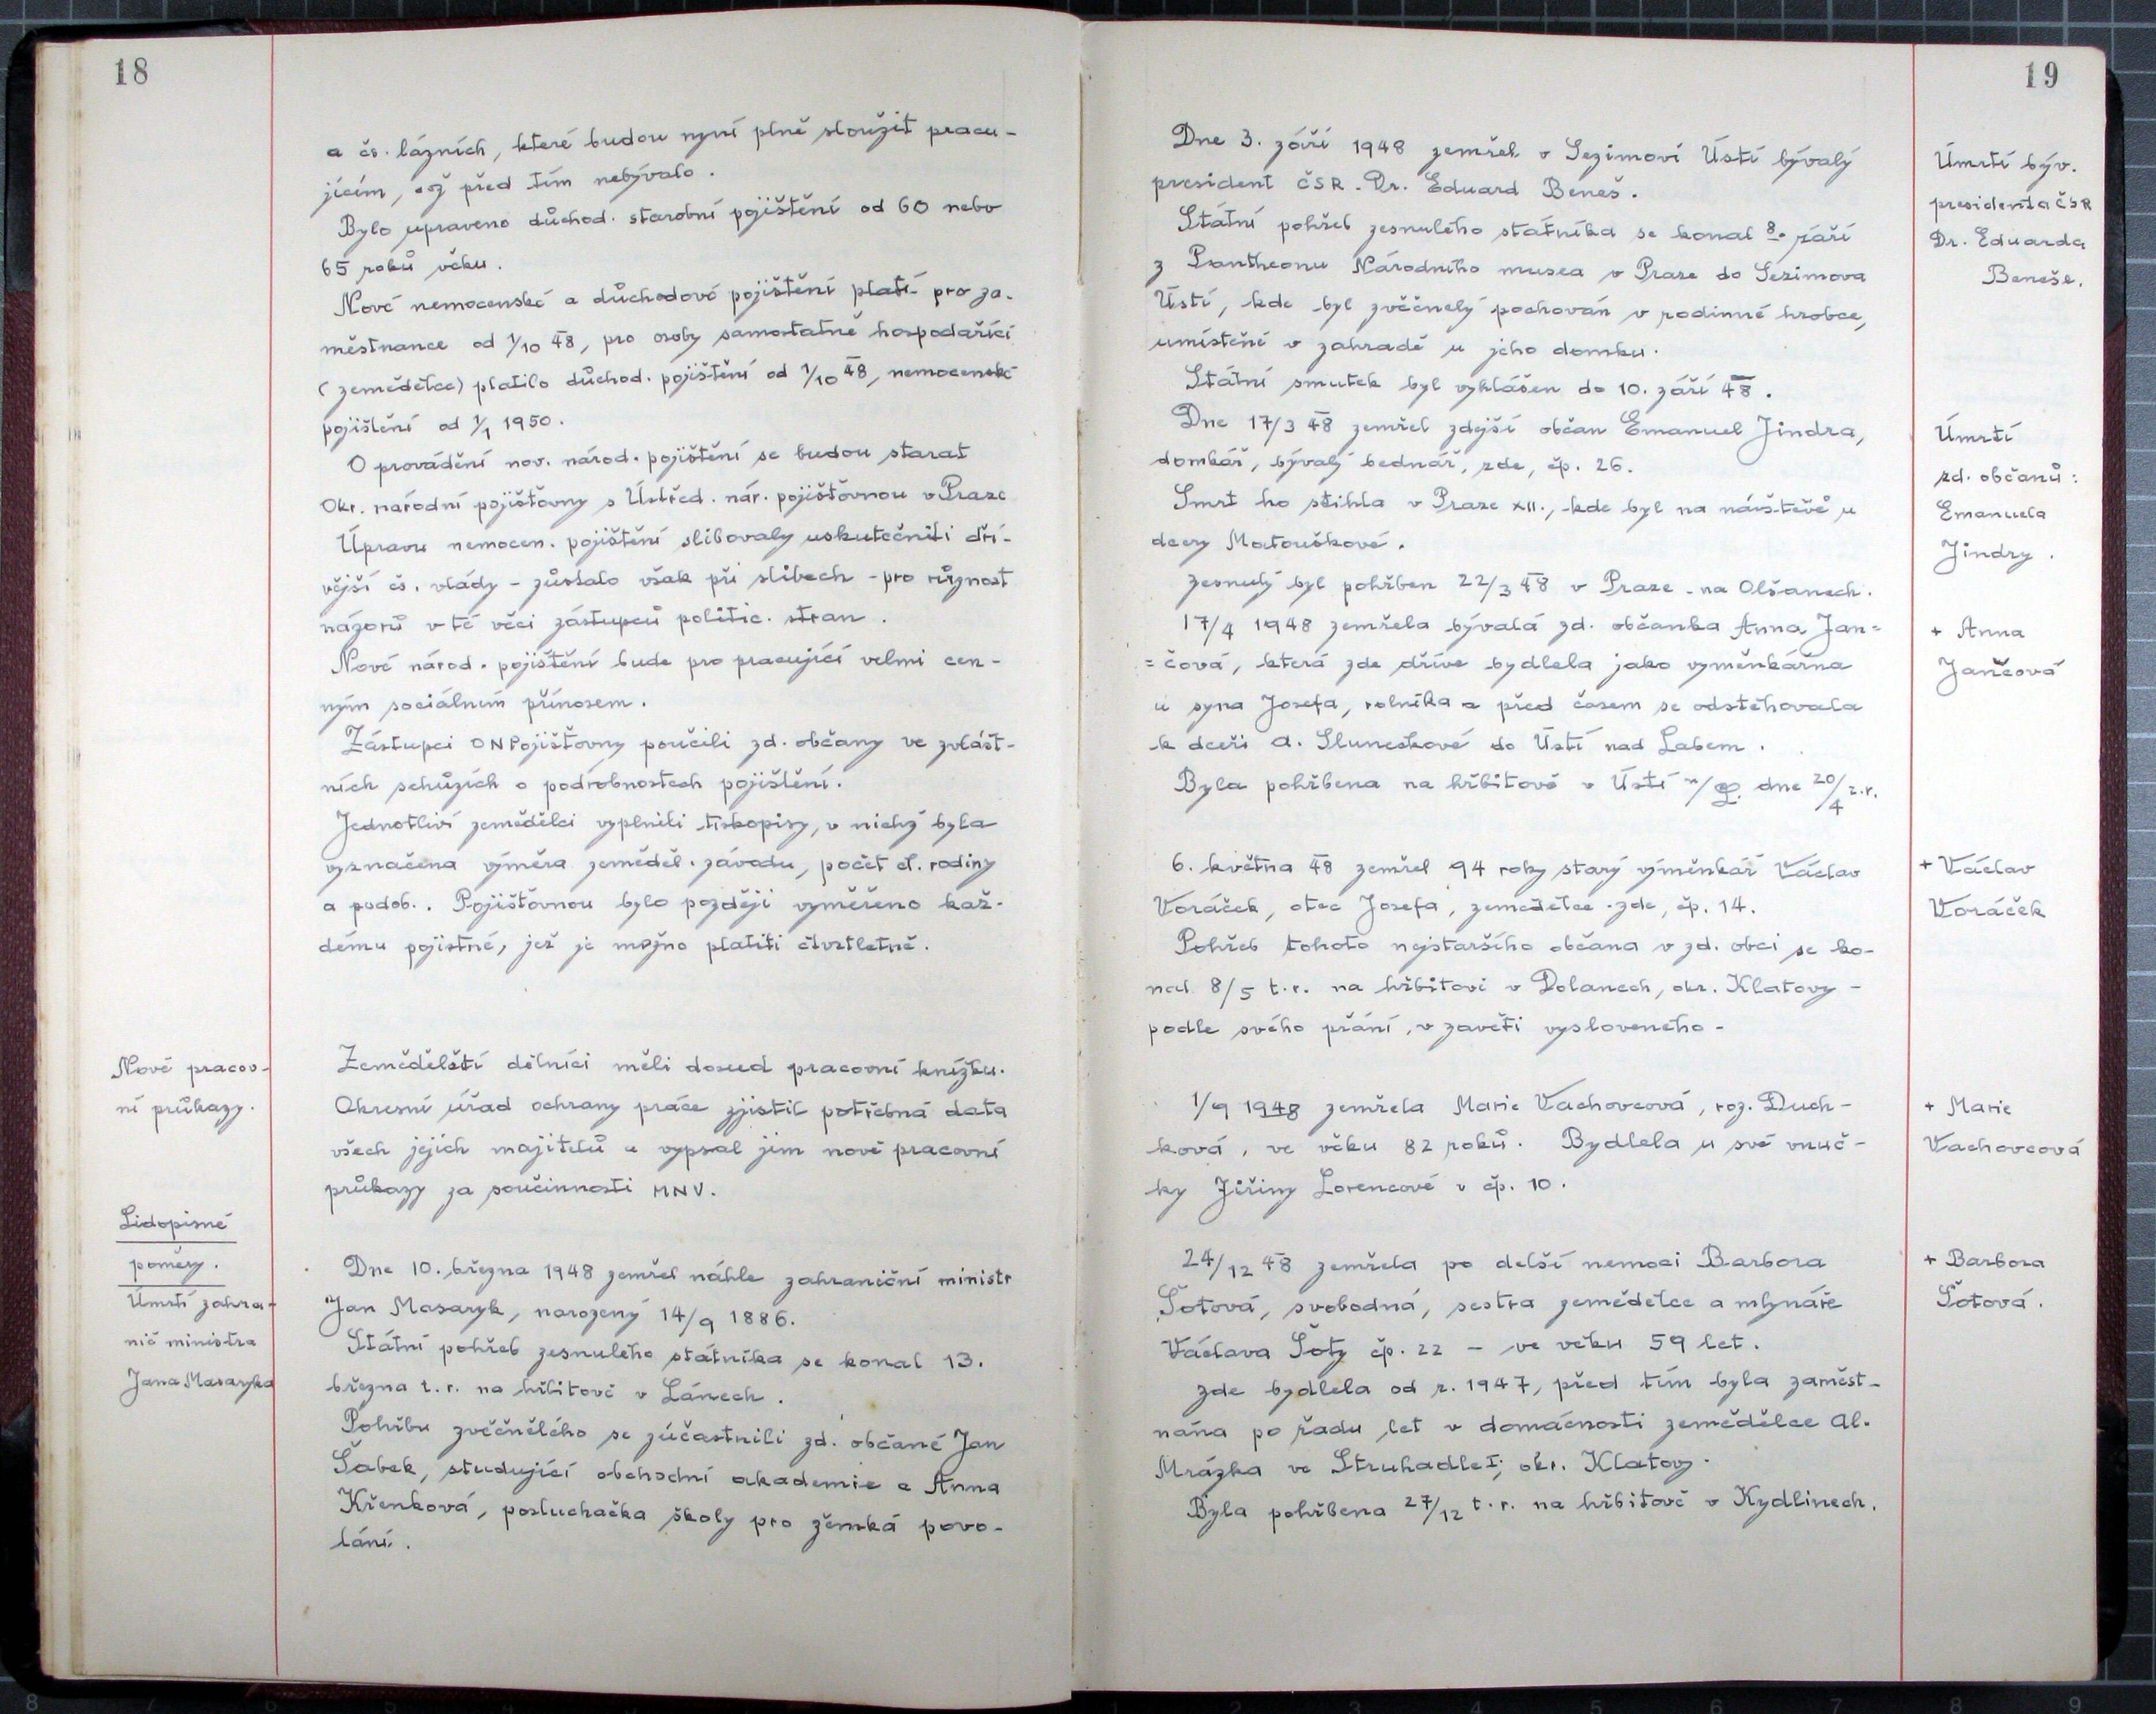 18
a čs. lázních, které budou nyní plně sloužit pracu-
jícím, což před tím nebývalo.
Bylo upraveno důchod. starobní pojištění od 60 nebo
65 roků věku.
Nové nemocenské a důchodové pojištění platí pro za-
městnance od 1/10 48, pro osoby samostatně hospodařící
(zemědělce) platilo důchod. pojištění od 1/10 48, nemocenské
pojištění od 1/1 1950.
O provádění nov. národ. pojištění se budou starat
Okr. národní pojišťovny s Ústřed. nár. pojišťovnou v Praze
Úpravu nemocen. pojištění slibovaly uskutečniti dří-
vější čs. vlády - zůstalo však při slibech - pro různost
názorů v té věci zástupců politic. stran.
Nové národ. pojištění bude pro pracující velmi cen-
ným sociálním přínosem.
Zástupci ONPojišťovny poučili zd. občany ve zvlášt-
ních schůzích o podrobnostech pojištění.
Jednotliví zemědělci vyplnili tiskopisy, v nichž byla
vyznačena výměra zeměděl. závodu, počet čl. rodiny
a podob.. Pojišťovnou bylo později vyměřeno kaž-
dému pojistné, jež je možno platiti čtvrtletně.
Nové pracov-
ní průkazy.
Zemědělští dělníci měli dosud pracovní knížku.
Okresní úřad ochrany práce zjistil potřebná data
všech jejích majitelů a vypsal jim nové pracovní
průkazy za součinnosti MNV.
Lidopisné
poměry.
Úmrtí zahra-
nič ministra
Jana Masaryka
Dne 10. března 1948 zemřel náhle zahraniční ministr
Jan Masaryk, narozený 14/9 1886.
Státní pohřeb zesnulého státníka se konal 13.
března t.r. na hřbitově v Lánech.
Pohřbu zvěčnělého se zúčastnili zd. občané Jan
Šabek, studující obchodní akademie a Anna
Křenková, posluchačka školy pro ženská povo-
lání.
19
Dne 3. září 1948 zemřel v Sezimoví Ústí bývalý
president ČSR. Dr. Eduard Beneš.
Státní pohřeb zesnulého státníka se konal 8. září
z Pantheonu Národního musea v Praze do Sezimova
Ústí, kde byl zvěčnělý pochován v rodinné hrobce,
umístěné v zahradě u jeho domku.
Státní smutek byl vyhlášen do 10. září 48.
Úmrtí býv.
presidenta ČSR
Dr. Eduarda
Beneše.
Dne 17/3 48 zemřel zdejší občan Emanuel Jindra,
domkář, bývalý bednář, zde, čp. 26.
Smrt ho stihla v Praze XII., kde byl na návštěvě u
dcery Matouškové.
Zesnulý byl pohřben 22/3 48 v Praze - na Olšanech.
Úmrtí
zd. občanů:
Emanuela
Jindry.
17/4 1948 zemřela bývalá zd. občanka Anna Jan=
=čová, která zde dříve bydlela jako vyměnkářka
u syna Josefa, rolníka a před časem se odstěhovala
k dceři A. Sluneckové do Ústí nad Labem.
Byla pohřbena na hřbitově v Ústí n/L. dne 20/4 t.r.
+ Anna
Jančová
6. května 48 zemřel 94 roky starý výměnkář Václav
Voráček, otec Josefa, zemědělce zde, čp. 14.
Pohřeb tohoto nejstaršího občana v zd. obci se ko-
nal 8/5 t.r. na hřbitově v Dolanech, okr. Klatovy -
podle svého přání, v závěti vysloveného -
+ Václav
Voráček
1/9 1948 zemřela Marie Vachovcová, roz. Duch-
ková, ve věku 82 roků. Bydlela u své vnuč-
ky Jiřiny Lorencové v čp. 10.
+ Marie
Vachovcová
24/12 48 zemřela po delší nemoci Barbora
Šotová, svobodná, sestra zemědělce a mlynáře
Václava Šoty čp. 22 - ve věku 59 let.
Zde bydlela od r. 1947, před tím byla zaměst-
nána po řadu let v domácnosti zemědělce Al.
Mrázka ve Struhadle I, okr. Klatovy.
Byla pohřbena 27/12 t.r. na hřbitově v Kydlinech.
+ Barbora
Šotová.